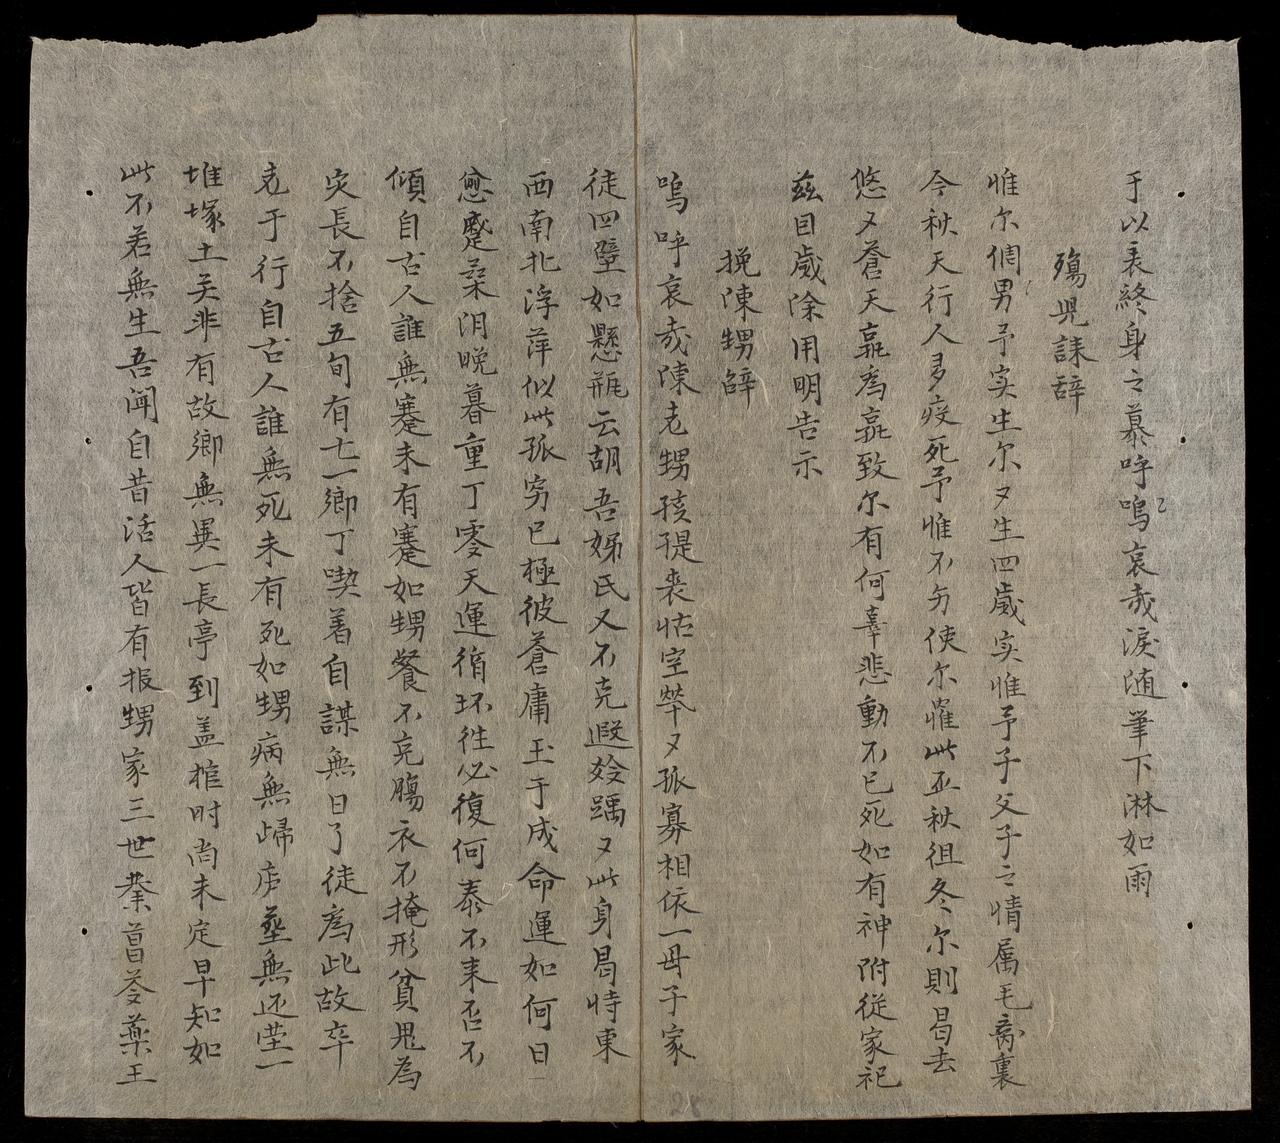 于以表終身之慕呼嗚哀哉淚随筆下淋如雨
殤児誄辞
惟尔倜男予实生尔〻生四歲实惟予子父子之情属毛离裏
今秋天行人多疫死予惟不匆使尔罹此丕秋徂冬尔則曷去
悠〻蒼天嬴為嬴致尔有何辜悲動不已死如有神附從家祀
茲目歲除用明告示
挽陳甥辞
嗚呼哀哉陳㐌甥孩提喪怙空㷀〻孤寡相依一母子家
徒四壁如懸瓶云胡吾姊氏又不克遐齡踽〻此身曷恃東
西南北浮萍似此孤穷已極彼蒼庸玉于成命運如何日
愈蹇桑汨晚暮重丁零天運循环往必復何泰不来否不
傾自古人誰無蹇未有蹇如甥餐不充膓衣不掩形貧鬼為
灾長不捨五旬有七一鄉丁喫着自謀無日了徒為此故卒
㐌于行自古人誰無死未有死如甥病無歸庐葬無还塋一
堆塚土关非有故鄉無異一長亭到盖棺时尚未定早知如
此不若無生吾闻自昔活人皆有报甥家三世業菖苓藥王